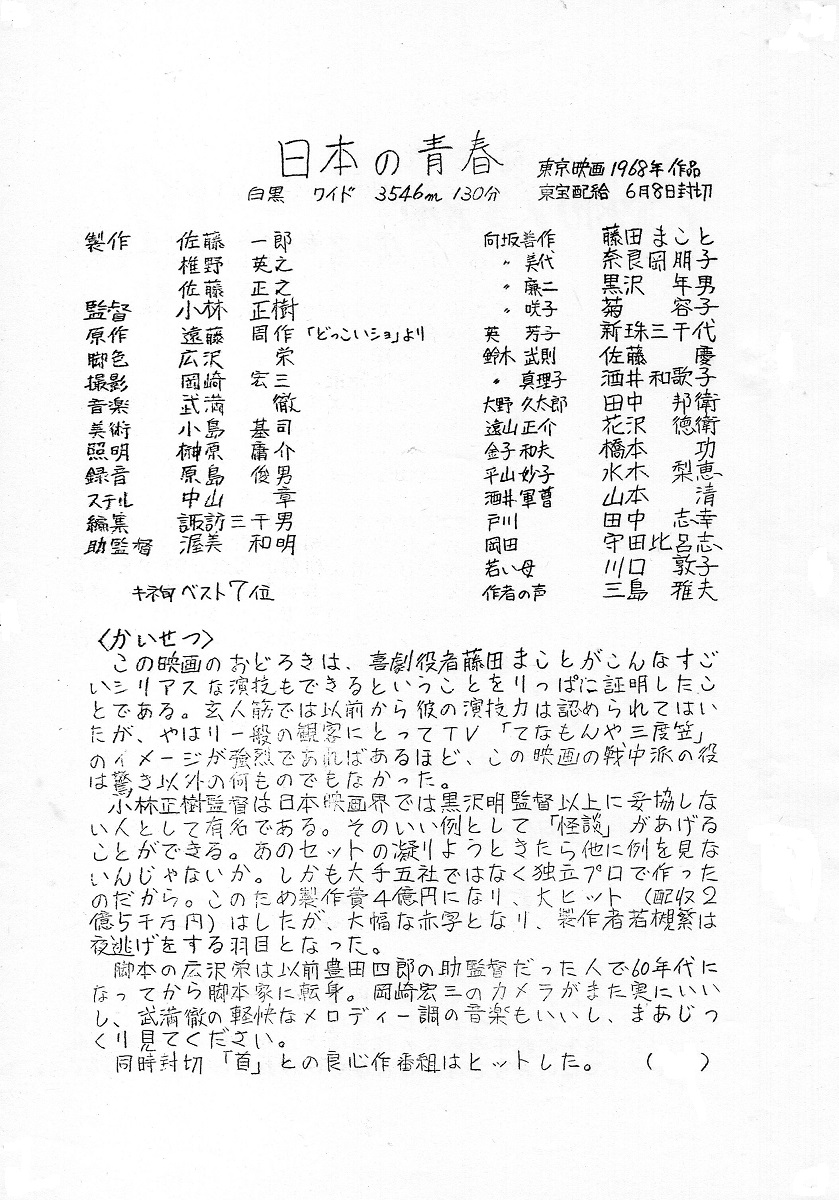 日本の青春
東京映画1968年作品
白黒 ワイド 3546m 130分 東宝配給 6月8日封切
製作 佐藤 一郎
椎野 英之
佐藤 正之
監督 小林 正樹
原作 遠藤 周作「どっこいショ」より
脚色 広沢 栄
撮影 岡崎 宏三
音楽 武満 徹
美術 小島 基司
照明 榊原 庸介
録音 原島 俊男
スチル 中山 章
編集 諏訪三千男
助監督 渥美 和明
キネ旬ベスト7位
向坂善作 藤田まこと
〃 美代 奈良岡朋子
〃 廉二 黒沢 年男
〃 咲子 菊 容子
英 芳子 新珠三千代
鈴木 武則 佐藤 慶
〃 真理子 酒井和歌子
大野 久太郎 田中 邦衛
遠山 正介 花沢 徳衛
金子 和夫 橋本 功
平山 妙子 水木 梨恵
酒井軍曹 山本 清
戸川 田中 志幸
岡田 守田比呂志
若い母 川口 敦子
作者の声 三島 雅夫
〈かいせつ〉
この映画のおどろきは、喜劇役者藤田まことがこんなすご
いシリアスな演技もできるということをりっぱに証明したこ
とである。玄人筋では以前から彼の演技力は認められてはい
たが、やはり一般の観客にとってTV「てなもんや三度笠」
のイメージが強烈であればあるほど、この映画の戦中派の役
は驚き以外の何ものでもなかった。
小林正樹監督は日本映画界では黒沢明監督以上に妥協しな
い人として有名である。そのいい例として「怪談」があげる
ことができる。あのセットの凝りようときたら他に例を見な
いんじゃないか。しかも大手五社ではなく独立プロで作った
のだから。このため製作費4億円になり、大ヒット(配収2
億5千万円)はしたが、大幅な赤字となり、製作者若槻繁は
夜逃げをする羽目となった。
脚本の広沢栄は以前豊田四郎の助監督だった人で60年代に
なってから脚本家に転身。岡崎宏三のカメラがまた実にいい
し、武満徹の軽快なメロディー調の音楽もいいし、まあじっ
くり見てください。
同時封切「首」との良心作番組はヒットした。 ( )